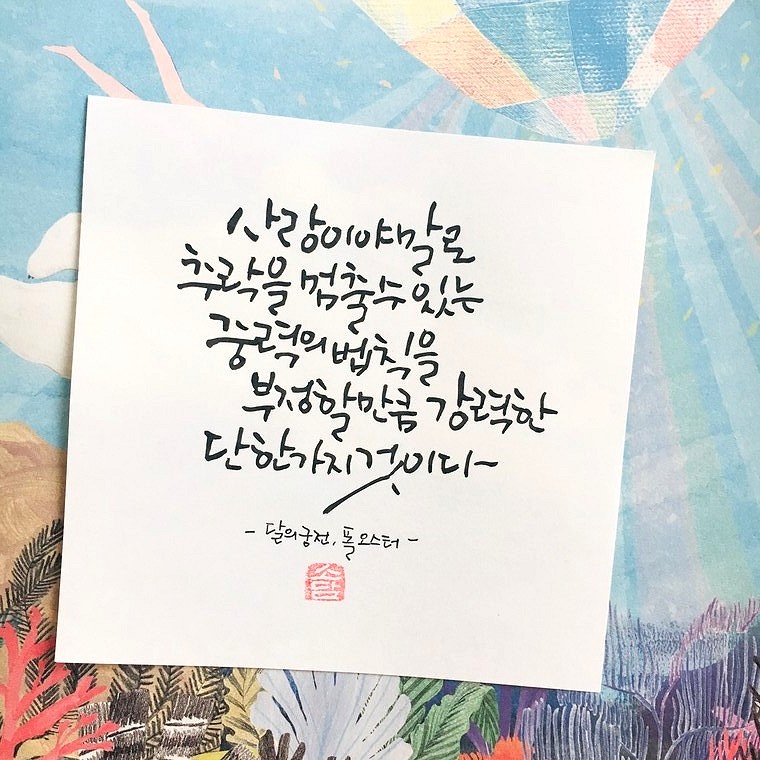 사랑이야말로
추락을 멈출 수 있는
중력의 법칙을
부정할만큼 강력한
단 한가지 것이다~
- 달의 궁전, 폴 오스터 -
소담